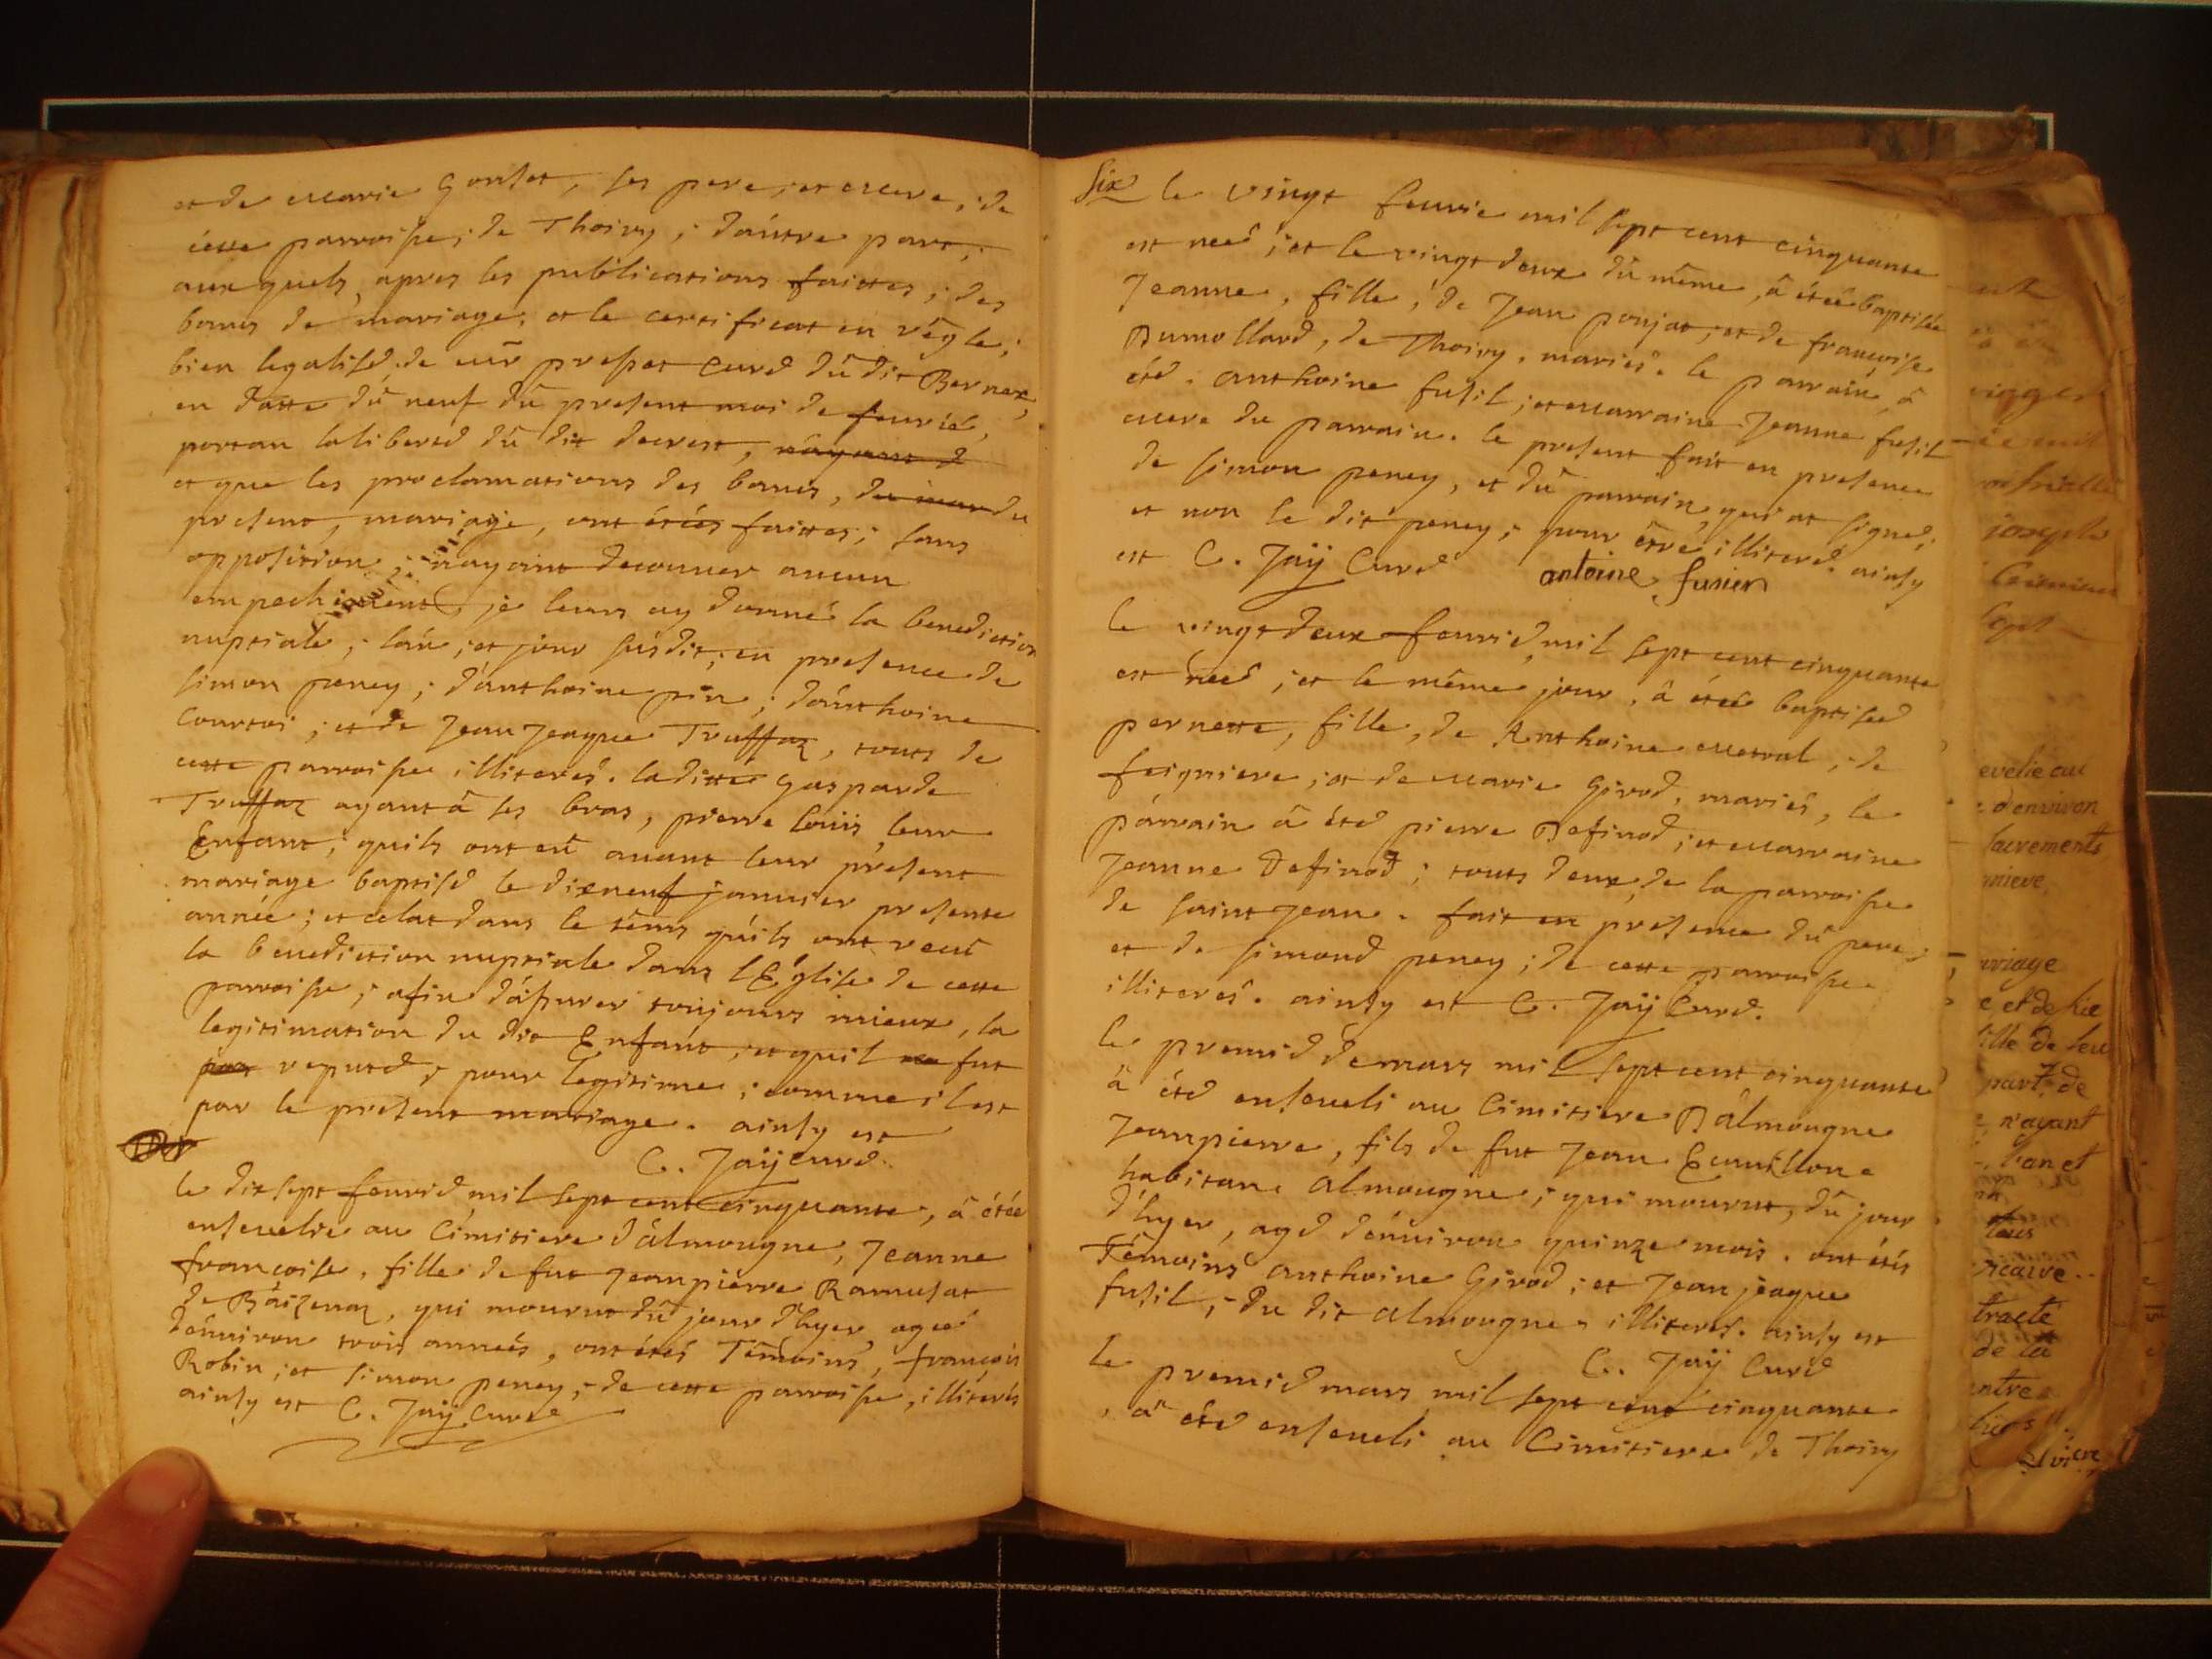 et de marie Gonset, ses pere, et mere, de
cette parroisse, de Thoiry, d'autre part,
auxquels, apres les publications faittes, des
bans de mariage, et le certificat en régle,
bien legalisé de mr prosper Curé dû dit Bernex,
en datte dû neuf dû present moi de feuvrié,
portan la liberté dû dit decrest, nayant d
et que les proclamations des bancs, du mar du
present, mariage, ont étées faittes, sans
opposition, nayant decouver aucun
empechement, je leurs ay donné la benediction
nuptiale, l'an, et jour susdit, en presence de
simon peney, d'anthoine pin, d'anthoine
Courtoi, et de Jean Jeaque Truffaz, touts de
cette parroisse illiterés. la ditte gasparde
Truffaz ayant â ses bras, pierre loüis, leur
Enfant, quils ont eû avant leur present
mariage baptisé le dixneuf janvier presente
année, et celat dans le tems qu'ils ont reçû
la benediction nuptiale dans l'Eglise de cette
parroisse, afin d'assurer toujours mieux, la
legitimation du dit Enfant, et quil ne fut
pas reputé, pour legitime, comme il est
par le present mariage. ainsy est
C. Jaÿ curé.
le dix sept feuvrié mil sept cent cinquante, â étée
ensevelie au Cimitiere d'âlmougne, Jeanne
françoise, fille de fut Jeanpierre Ramusat
de Baizenaz, qui mourut dû jour d'hyer, ageé
d'environ trois années, ont étés Témoins, françois
Robin, et simon peney, de cette parroisse, illiterés
ainsy est C. Jaÿ Curé
six le vingt feuvrie mil sept cent cinquante
est neé, et le vingt deux dû même, â étée baptisée
Jeanne, fille, de Jean poujat, et de françoise
Dumollard, de Thoiry, mariés. le parrain, â
été. anthoine fusil, et marraine Jeanne fusil
mere du parrain. le present fait en presence
de simon peney, et dû parrain, qui at signé,
et non le dit peney, pour être illiteré. ainsy
est C. Jaÿ Curé antoine fusier
le vingt deux feuvrié, mil sept cent cinquante
est neé, et le même jour, â étée baptiseé
pernette, fille, de Anthoine metral, de
feigniere, et de marie Girod, mariés, le
parrain â été pierre Definod, et marraine
Jeanne Definod, touts deux, de la parroisse
de saint Jean. fait en presence dû pere,
et de simond peney, de cette parroisse
illiterés. ainsy est C. Jaÿ Curé.
le premié de mars mil sept cent cinquante
â été enseveli au Cimitiere D'âlmougne
Jeanpierre, fils de fut Jean Ecuvillon
habitant almougne, qui mourut, dû jour
d'hyer, agé d'environ quinze mois. ont étés
Témoins anthoine Girod, et Jean jeaque
fusil, du dit almougne, illiterés. ainsy est
C. Jaÿ Curé
le premié mars mil sept cent cinquante
â été enseveli au Cimitiere de Thoiry
joseph
evelie au
d'environ
sacrements
nieve
uriage
e, et de
ille de feu
part, de
n'ayant
ban et
tous
vicaire
tracté
de la
entre